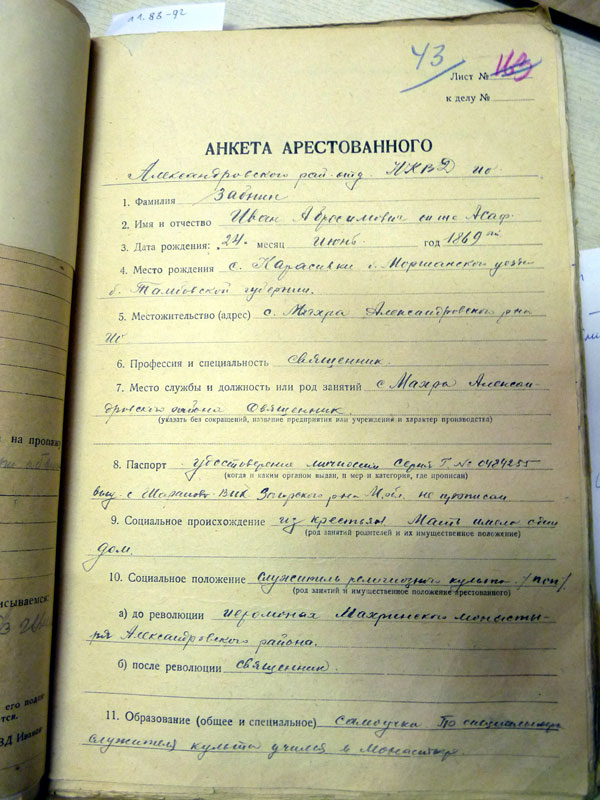 11.88-92
43
Лист № 163
к делу №
АНКЕТА АРЕСТОВАННОГО
Александровского рай-отд. НКВД по
1. Фамилия Забнин
2. Имя и отчество Иван Абросимович он же Асаф
3. Дата рождения: "24" месяц июнь год 1869
4. Место рождения с. Карасивки б. Моршанского уезда
б. Тамбовской губернии.
5. Местожительство (адрес) с. Махра Александровского р-на
6. Профессия и специальность священник.
7. Место службы и должность или род занятий с Махра Алексан-
дровского района Священник.
(указать без сокращений, название предприятия или учреждений и характер производства)
8. Паспорт удостоверение личности серия Г. № 0484255
(когда и каким органом выдан, п мер и категория, где прописан)
выд. с Шарапово ВИК Загорского р-на не прописан
9. Социальное происхождение из крестьян Мать имела свой
(род занятий родителей и их имущественное положение)
дом.
10. Социальное положение служитель религиозного культа /поп/
(род занятий и имущественное положение арестованного)
а) до революции иеромонах Махринского монасты-
ря Александровского района.
б) после революции священник.
11. Образование (общее и специальное) самоучка По специальному
служителя культа учился в монастыре.
на пропи
исываемск
его подп
тся.
ВД Иванов